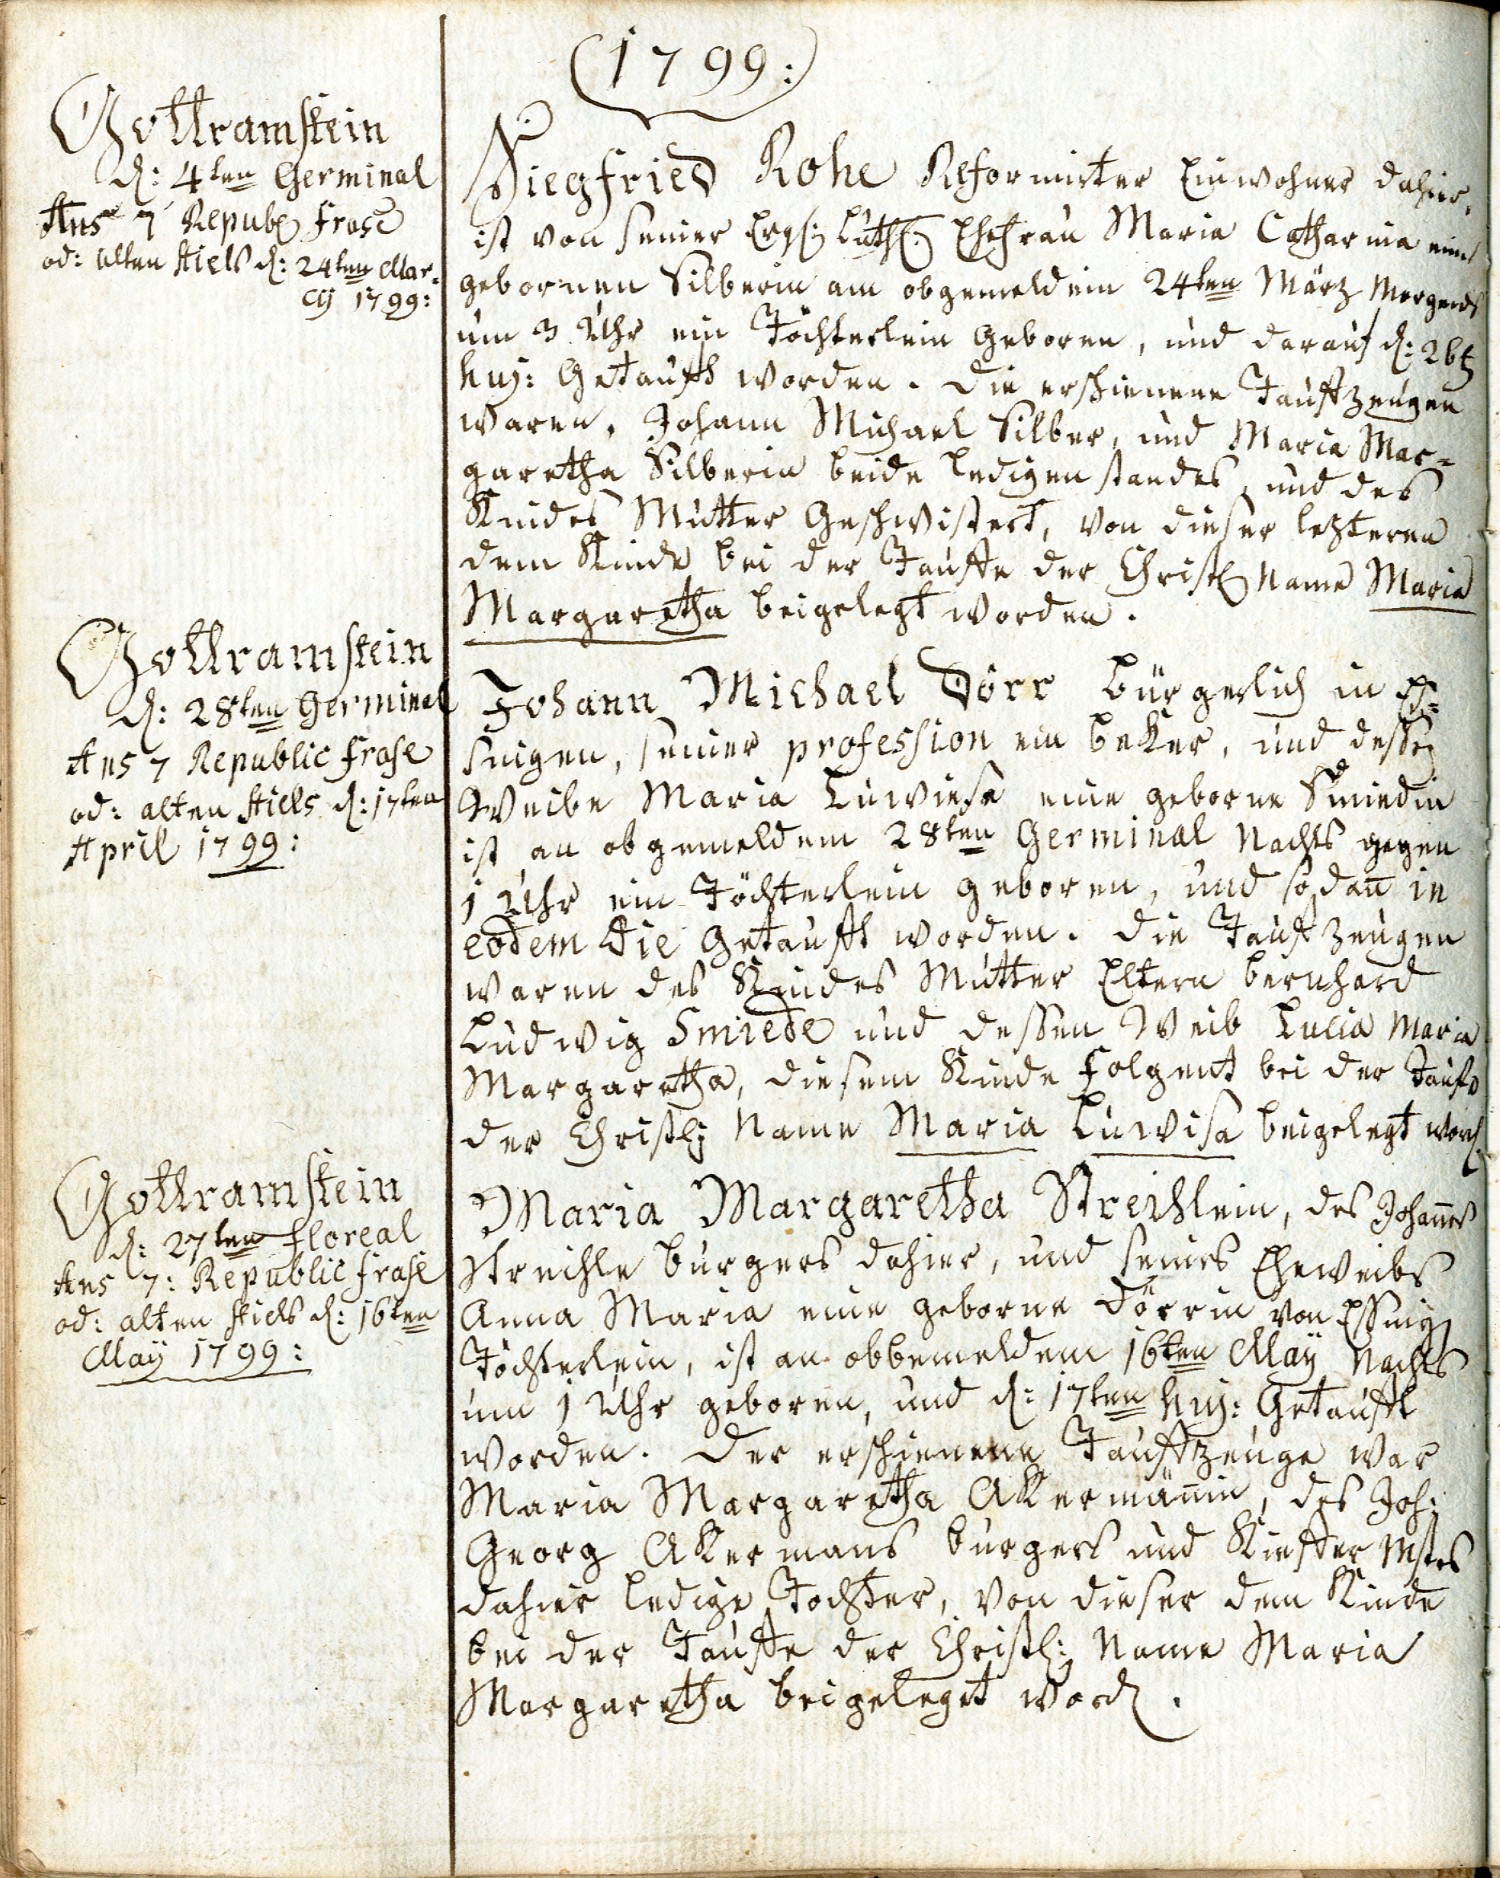 (1799:)
Gottramstein
d: 4ten Germinal
Ans 7 Republ frase
od: alten Stiels d: 24ten Mar-
cij 1799:
Siegfried Rohe Reformirter Einwohner dahier,
ist von seiner Luth: Ehefrau Maria Catharina eine
gebornen Silberin am obgemeldem 24ten März Morgends
um 3 Uhr ein Töchterlein Geboren, und darauf d: 26t
huj: Getaufft worden. Die erschienene Tauffzeugen
waren, Johann Michael Silber, und Maria Mar=
garetha Silberin beide Ledigen standes, und des
Kindes Mutter Geschwistert, von dieser letzteren
dem Kinde bei der Tauffe der Christl Name Maria
Margaretha beigelegt worden.
Gottramstein
d: 28ten Germinal
Ans 7 Republic frase
od: alten Stiels d: 17ten
April 1799:
Johann Michael Dörr Bürgerlich in Es=
singen, seiner profession ein Beker, und dessen
Weibe Maria Luwiesa eine geborne Smiedin
ist an obgemeldem 28ten Germinal Nachts gegen
1 Uhr ein Töchterlein geboren, und sodan in
eodem die Getaufft worden. Die Taufzeugen
waren des Kindes Mutter Eltern Bernhard
Ludwig Smiede und dessen Weib Lucia Maria
Margaretha, diesem Kinde folgent bei der Taufe
der Christl Name Maria Luwisa beigelegt word.
Gottramstein
d: 27ten floreal
Ans 7: Republic frase
od: alten Stiels d: 16ten
May 1799:
Maria Margaretha Streichlein, des Johannes
Streichle Burgers dahier, und seines Eheweibs
Anna Maria eine geborne Dörrin von Essing
Töchterlein, ist an obbemeldem 16ten May Nachts
um 1 Uhr geboren, und d: 17ten huj: Getaufft
worden. Der erschienene Tauffzeuge war
Maria Margaretha Akermännin, des Joh:
Georg Akermans Burgers und Kieffer Mstrs
dahier Ledige Tochter, von dieser dem Kinde
bei der Tauffe der Christl: Name Maria
Margaretha beigeleget word.